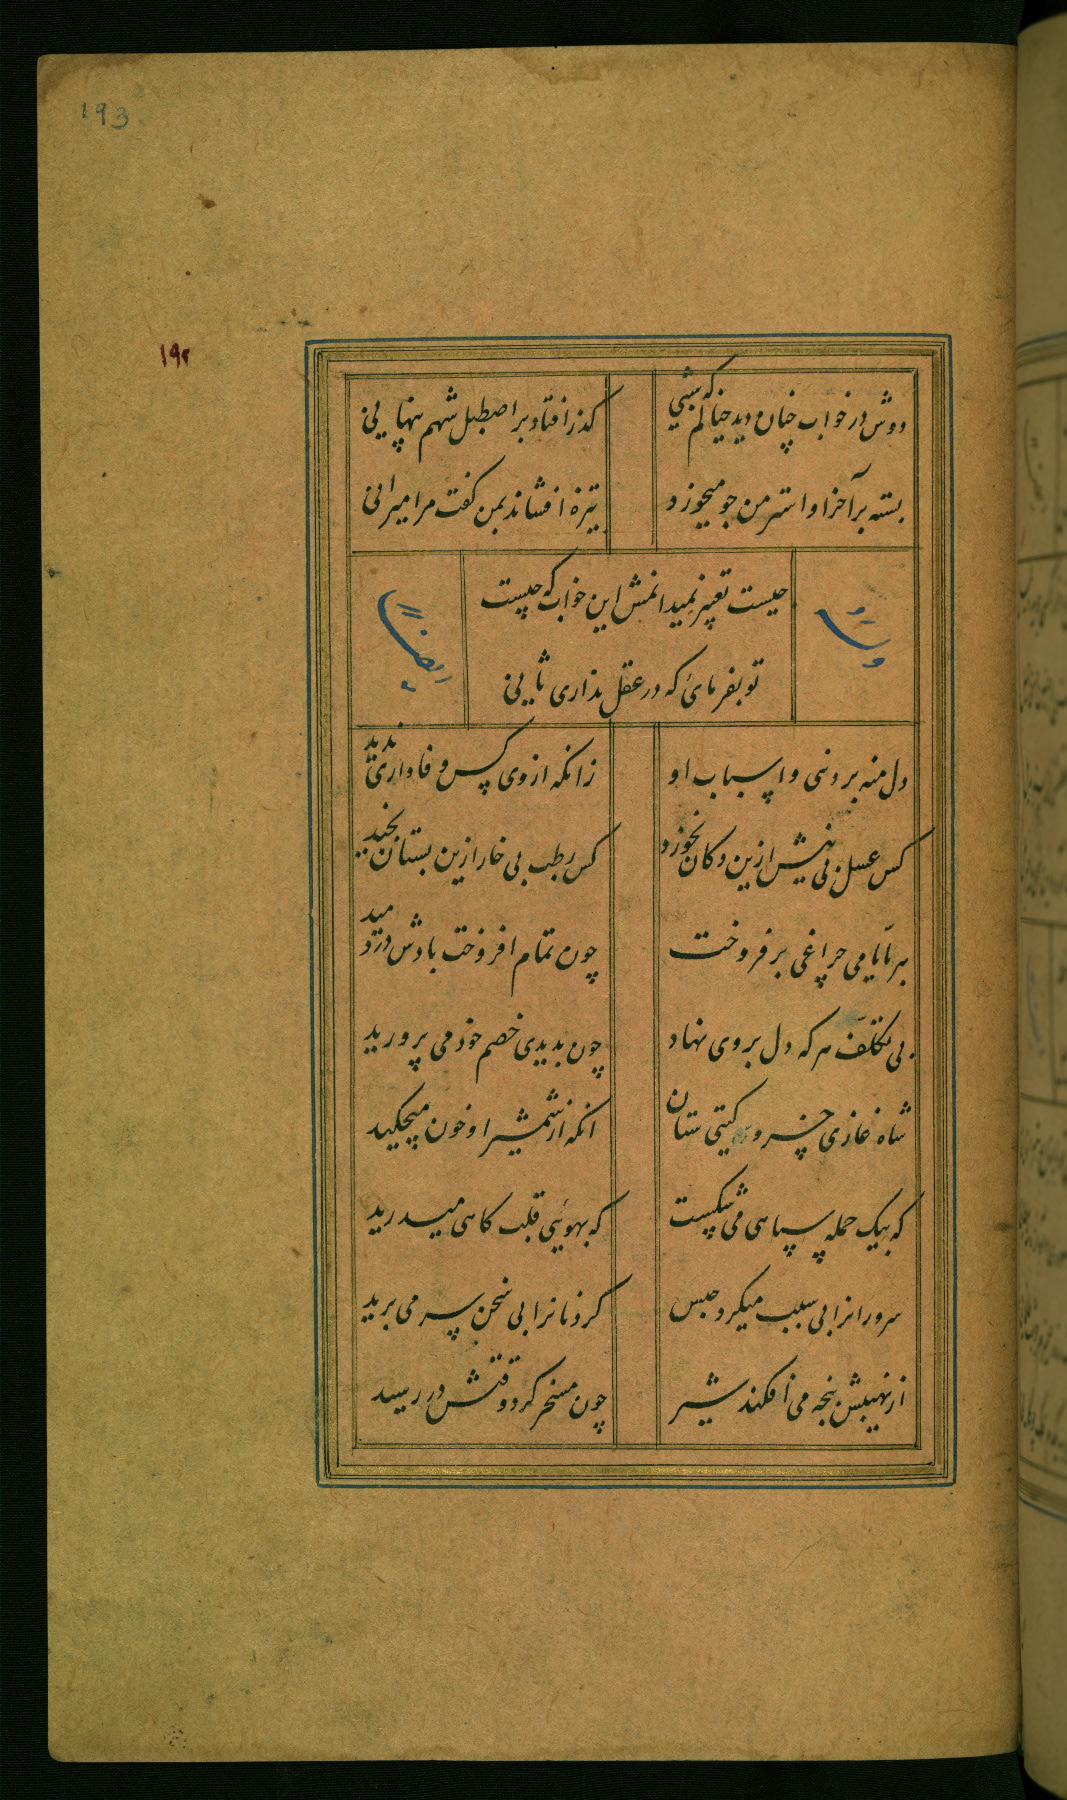 193
۱۹۲
دوش در خواب چنان دید خیالم که شبی
گذر افتاد بر اصطبل شهم پنهانی
بسته بر آخر او استر من جو میخورد
تیزه افشاند بمن گفت مرا میرانی
چیست تعبیر نمیدانمش این خواب که چیست
وله
ایضاً
تو بفرمائ که در عقل نداری ثانی
دل منه بر دنیی و اسباب او
زانکه از وی کس وفاداری ندید
کس عسل بی نیش ازین دکان نخورد
کس رطب بی خار ازین بستان نچید
هر بایامی چراغی بر فروخت
چون تمام افروخت بادش در دمید
بی تکلف هر که دل بر وی نهاد
چون بدیدی خصم خود می پرورید
شاه غازی خسرو گیتی ستان
انکه از شمشیر او خون میچکید
که بیک حمله سپاهی می شکست
که بهوئی قلب کاهی میدرید
سرورانرا بی سبب میکرد حبس
گردنانرا بی سخن سر می برید
از نهیبش پنجه می افکند شیر
چون مسخر کرد وقتش در رسید